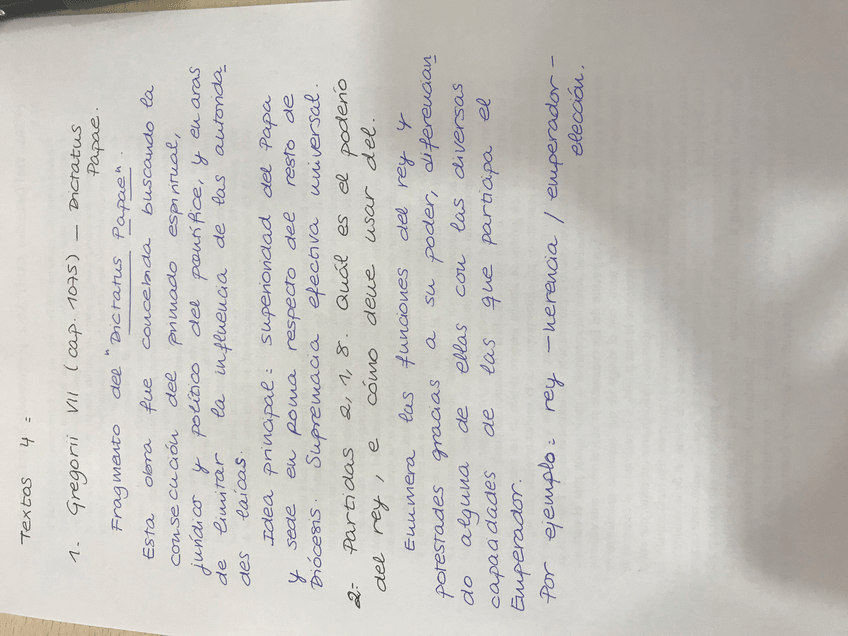 Textos 4 =
1. Gregorii VII (cap. 1075) — Dictatus
Papae.
Fragmento del "Dictatus Papae".
Esta obra fue concebida buscando la
consecución del primado espiritual,
jurídico y político del pontífice, y en aras
de limitar la influencia de las autorida=
des laicas.
Idea principal: superioridad del Papa
y sede en Roma respecto del resto de
Diócesis. Supremacía efectiva universal.
2= Partidas 2, 1, 8. Quál es el poderío
del rey, e cómo deue usar del.
Enumera las funciones del rey y
potestades gracias a su poder, diferencian
do alguna de ellas con las diversas
capacidades de las que participa el
Emperador.
Por ejemplo: rey — herencia / emperador —
elección.